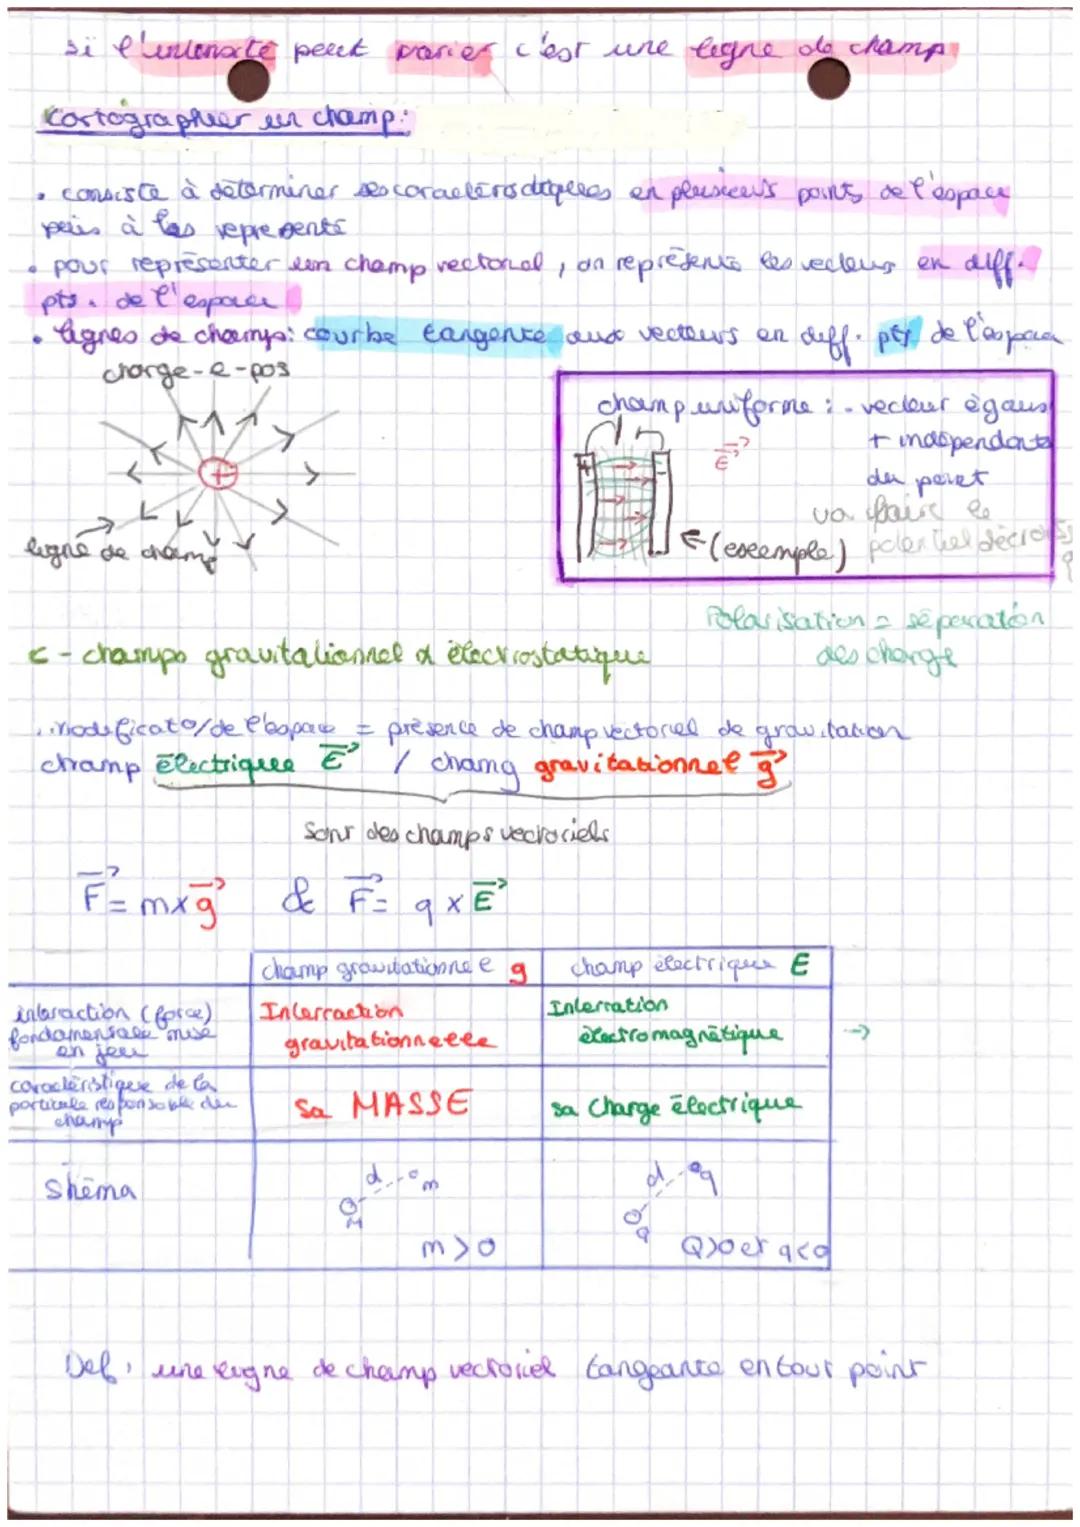 si l'intensité peut varier c'est une ligne de champ
Cartographier un champ:
• consiste à déterminer ses caractéristiques en plusieurs points de l'espace
puis à les représenté
• pour représenter un champ vectoriel, on représente les vecteurs en diff.
pts. de l'espace
• lignes de champs: courbe tangente aux vecteurs en diff. pts de l'espace
charge-e-pos
+
ligne de champ
champ uniforme : - vecteur égaus
+ indépendante
du point
va faire le
potentiel décrois
+
-
E
←(exemple)
Polarisation = séparation
des charge
C - champs gravitationnel & électrostatique
modificato/de l'espace = présence de champ vectoriel de gravitation
champ électrique E / champ gravitationnel g
sont des champs vectoriels
F = m x g & F = q x E
champ gravitationnel g
champ électrique E
interaction (force)
fondamentale mise
en jeu
Interraction
gravitationnelle
Interration
électromagnétique
→
caractéristique de la
particule responsable du
champ
sa MASSE
sa charge électrique
Shéma
d
m
M
m > 0
d
q
Q>0 et q<0
Def: une ligne de champ vectoriel tangeante en tout point